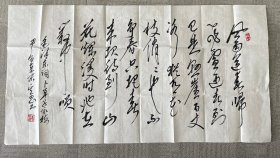 风雨送春归
飞雪迎春到
已是悬崖百丈
冰犹有花
枝俏俏也不
争春只把春
来报待到山
花烂漫时她在
丛中笑
毛泽东词卜算子咏梅